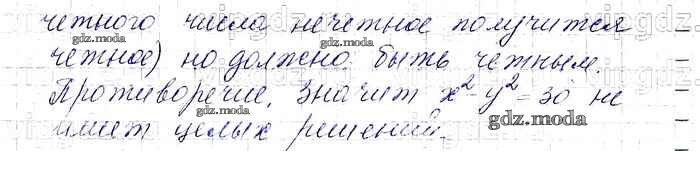 четного числа нечетное получится
четное) но должно быть четным.
Противоречие. Значит x² - y² = 30 не
имеет целых решений.
gdz.moda
gdz.moda
gdz.moda
gdz.moda
gdz.moda